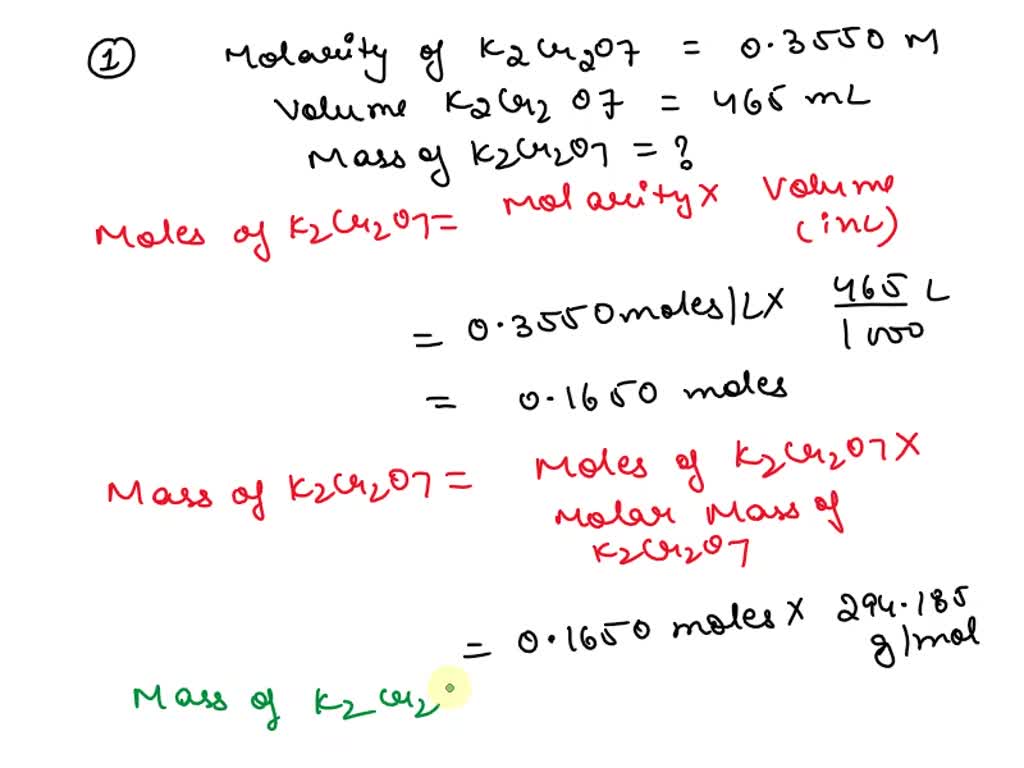 ① Molarity of K2Cr2O7 = 0.3550 M
Volume K2Cr2O7 = 465 mL
Mass of K2Cr2O7 = ?
Moles of K2Cr2O7 = Molarity × Volume
(in L)
= 0.3550 moles/L × 465/1000 L
= 0.1650 moles
Mass of K2Cr2O7 = Moles of K2Cr2O7 ×
Molar Mass of
K2Cr2O7
= 0.1650 moles × 294.185
g/mol
Mass of K2Cr2